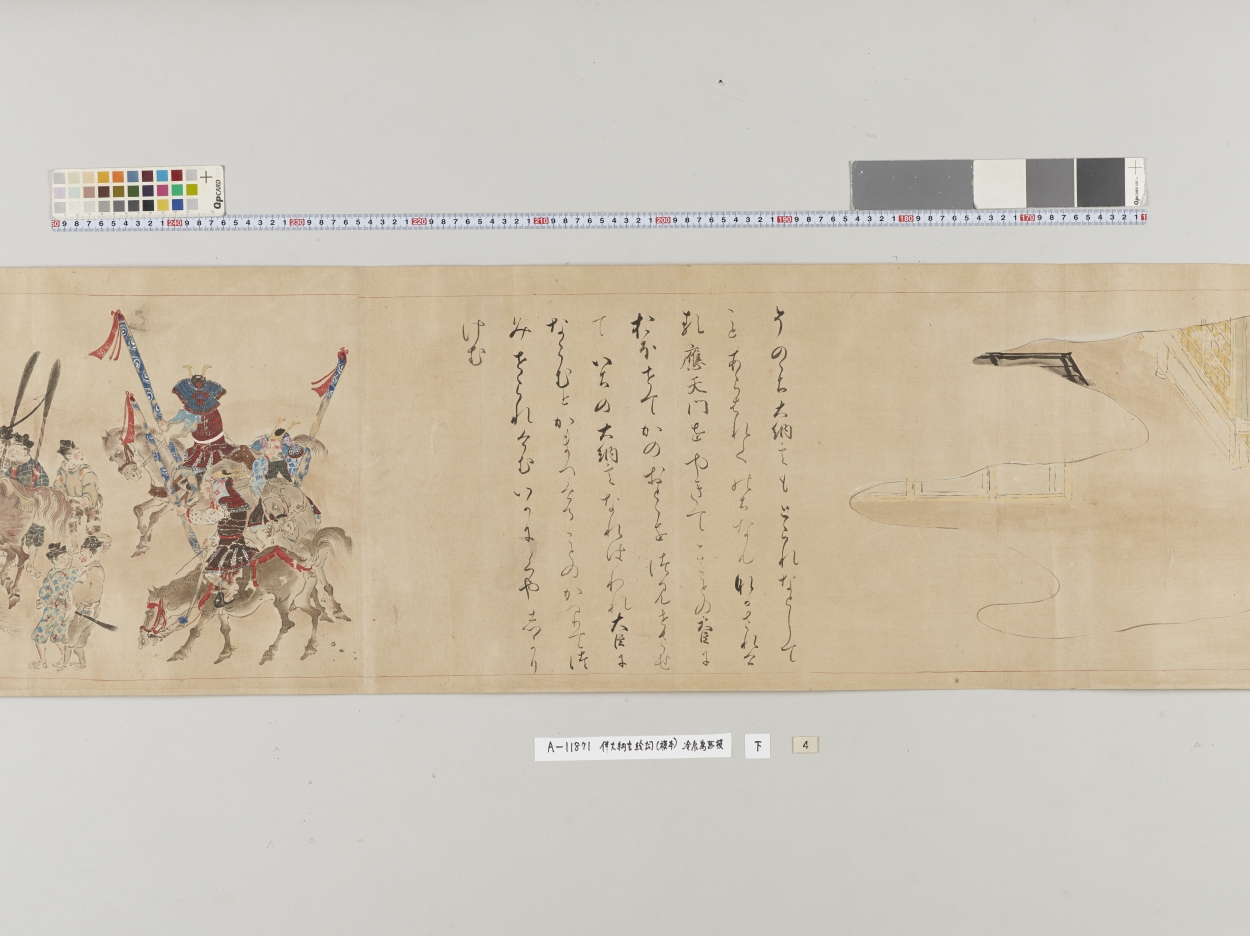 そのゝち大納言もとはれなとして
ことあらはれてのちなんなかされけ
る應天門をやきてまことの大臣に
おほせてかのおとゝをつみせさせ
ていちの大納言なれはわれ大臣に
ならむとかまへけることのかへりてつ
みせられけむいかにくやしかり
けむ
A-11871 伴大納言絵詞(模本) 冷泉為恭模
下
4
QPCARD